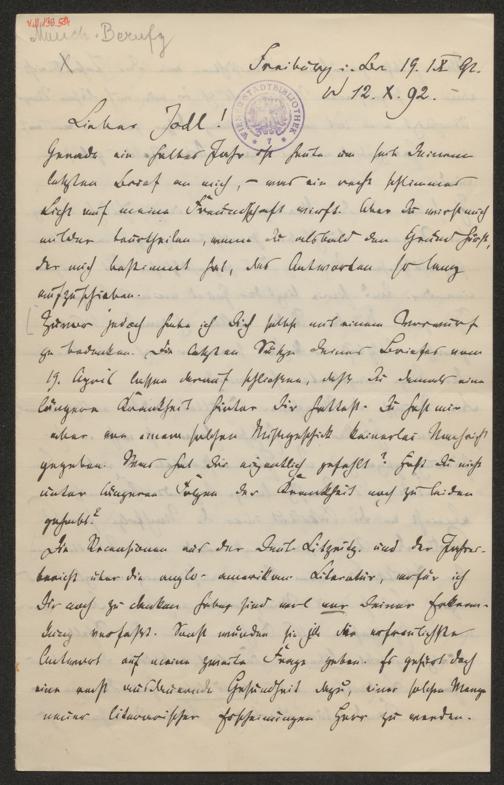 Münch-Berufg
X
Freiburg i. Br. 19. IX 92.
12. X. 92.
WIENER STADTBIBLIOTHEK
Lieber Jodl!
Gerade ein halbes Jahr ist heute um seit Deinem
letzten Brief an mich, – was ein recht schlimmes
Licht auf meine Freundschaft wirft. Aber Du wirst mich
milder beurtheilen, wenn Du alsbald den Grund hörst,
der mich bestimmt hat, das Antworten so lang
aufzuschieben.
Zuvor jedoch habe ich Dich selbst mit einem Vorwurf
zu bedenken. Die letzten Sätze Deines Briefes vom
19. April lassen darauf schließen, daß Du damals eine
längere Krankheit hinter Dir hattest. Du hast mir
aber von einem solchen Mißgeschick keinerlei Nachricht
gegeben. Was hat Dir eigentlich gefehlt? Hast Du nicht
unter längeren Folgen der Krankheit noch zu leiden
gehabt?
Die Recensionen aus der Deut. Litzeitg. und der Jahres-
bericht über die anglo-amerikan. Literatur, wofür ich
Dir noch zu danken habe, sind wol vor Deiner Erkran-
kung verfaßt. Sonst würden sie die erfreulichste
Antwort auf meine zweite Frage geben. Es gehört doch
eine recht ausdauernde Gesundheit dazu, einer solchen Menge
neuer literarischer Erscheinungen Herr zu werden.